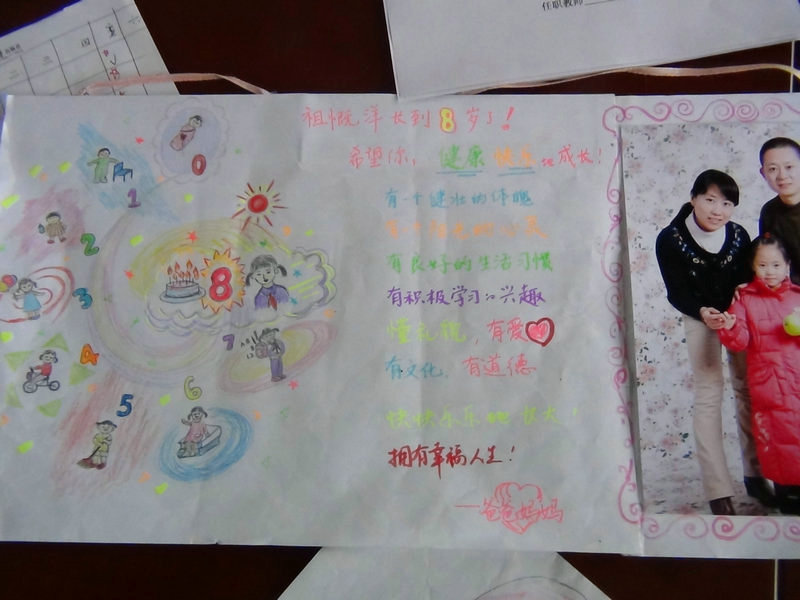 任职教师
0
1
2
3
4
5
6
7
8
祖慨洋长到8岁了！
希望你：健康 快乐地成长！
有一个健壮的体魄
有良好的生活习惯
有积极学习的兴趣
懂礼貌，有爱心
有文化、有道德
快快乐乐地长大！
拥有幸福人生！
——爸爸妈妈